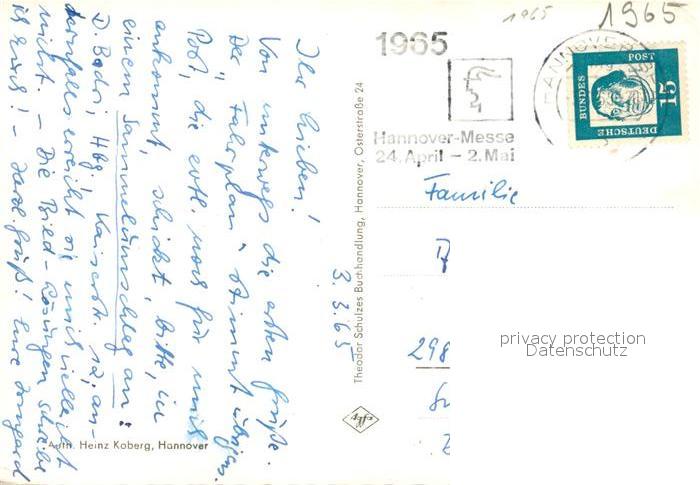 1965
1965
1965
HANNOVER
Hannover-Messe
24. April - 2. Mai
DEUTSCHE
BUNDES
POST
15
Familie
298
privacy protection
Datenschutz
3.3.65
Ihr Lieben!
Von unterwegs die ersten Grüße.
Der "Fahrplan" stimmt übrigens.
Post, die evtl. noch für mich
ankommt, schickt, bitte, in
einem Sammelumschlag an:
D. Bador, Hbg, Kaiserstr. 12, an-
dernfalls erreicht sie mich vielleicht
nicht. - Die schreibe
ich noch! - Eure Irmgard
Theodor Schulzes Buchhandlung, Hannover, Osterstraße 24
Agfa
Aufn. Heinz Koberg, Hannover